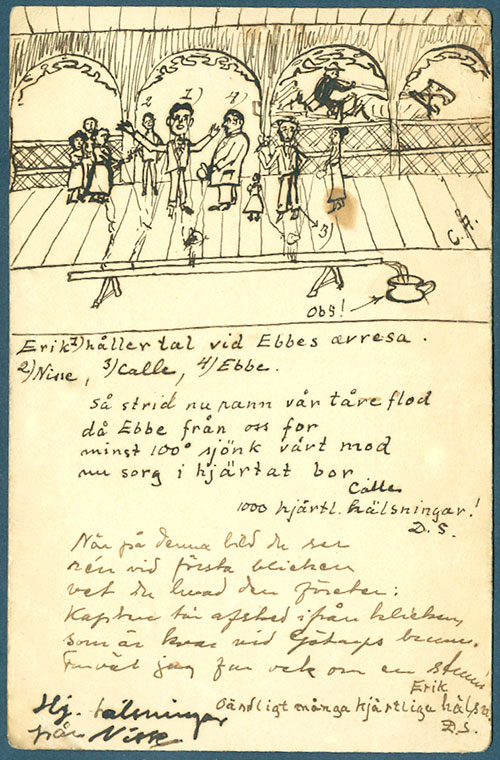 2 1) 4)
3)
Obs!
Erik 1) håller tal vid Ebbes avresa.
2) Nisse, 3) Calle, 4) Ebbe.
Så strid nu rann vår tåreflod
då Ebbe från oss for
minst 100° sjönk vårt mod
nu sorg i hjärtat bor
Calle
1000 hjärtl. hälsningar!
D.S.
När på denna bild du ser
rén vid första blicken
vet du hvad den företer:
tar afsked ifrån klicken,
som är kvar vid
jag far vek om en
Erik
Oändligt många hjärtliga
D.S.
Hj. hälsningar
från Nisse